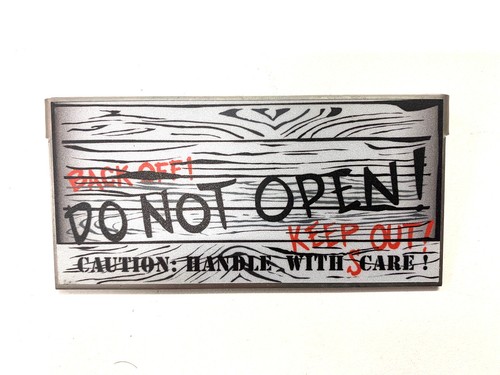 BACK OFF!
DO NOT OPEN!
KEEP OUT!
CAUTION: HANDLE WITH SCARE!